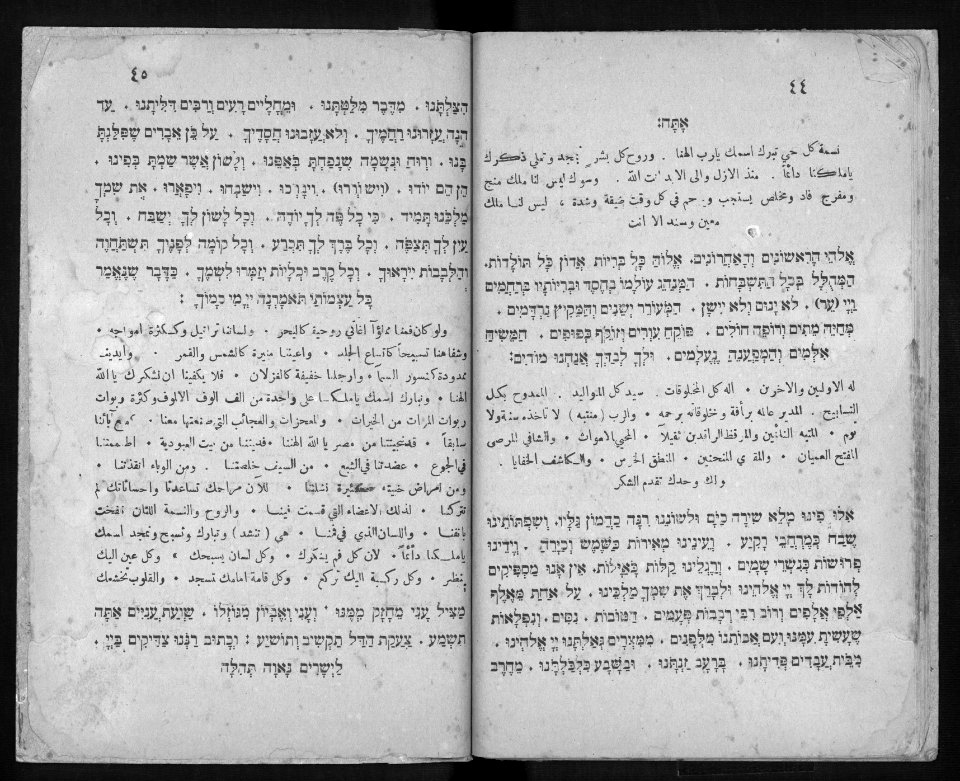 ٤٤
אַתָּה:
نسمة كل حي تبرك اسمك يارب الهنا . وروح كل بشر تمجد وتعلي ذكرك
ياملكنا دائماً . منذ الازل والى الابد انت الله . وسوك ليس لنا ملك منج
ومفرج فاد ومخلص يستجب ويرحم في كل وقت ضيقة وشدة ، ليس لنا ملك
معين وسند الا انت
אֱלֹהֵי הָרִאשׁוֹנִים וְהָאַחֲרוֹנִים. אֱלוֹהַּ כָּל בְּרִיּוֹת אֲדוֹן כָּל תּוֹלָדוֹת.
הַמְהֻלָּל בְּכָל הַתִּשְׁבָּחוֹת . הַמְנַהֵג עוֹלָמוֹ בְּחֶסֶד וּבְרִיּוֹתָיו בְּרַחֲמִים
וַיְיָ (עֵר) . לֹא יָנוּם וְלֹא יִישָׁן . הַמְעוֹרֵר יְשֵׁנִים וְהַמֵּקִיץ נִרְדָּמִים .
מְחַיֵּה מֵתִים וְרוֹפֵא חוֹלִים . פּוֹקֵחַ עִוְרִים וְזוֹקֵף כְּפוּפִים . הַמֵּשִׂיחַ
אִלְּמִים וְהַמְפַעֲנֵחַ נֶעֱלָמִים . וּלְךָ לְבַדְּךָ אֲנַחְנוּ מוֹדִים:
له الاولين والاخرين . اله كل المخلوقات . سيد كل المواليد . الممدوح بكل
التسابيح . المدبر عالمه برأفة وخلوقاته برحمه . والرب (منتبه) لا تاخذه سنة ولا
نوم . المنبه النائمين والموقظ الراقدين ثقيلاً . المحيي الاموات . والشافي المرضى
المفتح العميان . والمقوي المنحنين . المنطق الخرس . والكاشف الخفايا .
ولك وحدك تقدم الشكر
אִלּוּ פִינוּ מָלֵא שִׁירָה כַיָּם וּלְשׁוֹנֵנוּ רִנָּה כַּהֲמוֹן גַּלָּיו. וְשִׂפְתוֹתֵינוּ
שֶׁבַח כְּמֶרְחֲבֵי רָקִיעַ . וְעֵינֵינוּ מְאִירוֹת כַּשֶּׁמֶשׁ וְכַיָּרֵחַ . וְיָדֵינוּ
פְרוּשׂוֹת כְּנִשְׁרֵי שָׁמָיִם . וְרַגְלֵינוּ קַלּוֹת כָּאַיָּלוֹת. אֵין אָנוּ מַסְפִּיקִים
לְהוֹדוֹת לְךָ יְיָ אֱלֹהֵינוּ וּלְבָרֵךְ אֶת שִׁמְךָ מַלְכֵּנוּ . עַל אַחַת מֵאֶלֶף
אַלְפֵי אֲלָפִים וְרוֹב רִבֵּי רְבָבוֹת פְּעָמִים . הַטּוֹבוֹת . נִסִּים . וְנִפְלָאוֹת
שֶׁעָשִׂיתָ עִמָּנוּ וְעִם אֲבוֹתֵינוּ מִלְּפָנִים . מִמִּצְרַיִם גְּאַלְתָּנוּ יְיָ אֱלֹהֵינוּ .
מִבֵּית עֲבָדִים פְּדִיתָנוּ . בְּרָעָב זַנְתָּנוּ . וּבְשָׂבָע כִּלְכַּלְתָּנוּ . מֵחֶרֶב
٤٥
הִצַּלְתָּנוּ . מִדֶּבֶר מִלַּטְתָּנוּ . וּמֵחֳלָיִים רָעִים וְרַבִּים דִּלִּיתָנוּ . עַד
הֵנָּה עֲזָרוּנוּ רַחֲמֶיךָ . וְלֹא עֲזָבוּנוּ חֲסָדֶיךָ . עַל כֵּן אֵבָרִים שֶׁפִּלַּגְתָּ
בָּנוּ . וְרוּחַ וּנְשָׁמָה שֶׁנָּפַחְתָּ בְּאַפֵּנוּ . וְלָשׁוֹן אֲשֶׁר שַׂמְתָּ בְּפִינוּ .
הֵן הֵם יוֹדוּ . (וישוררו) . וִיבָרְכוּ . וִישַׁבְּחוּ . וִיפָאֲרוּ . אֶת שִׁמְךָ
מַלְכֵּנוּ תָּמִיד . כִּי כָל פֶּה לְךָ יוֹדֶה . וְכָל לָשׁוֹן לְךָ יְשַׁבֵּחַ . וְכָל
עַיִן לְךָ תְּצַפֶּה . וְכָל בֶּרֶךְ לְךָ תִכְרַע . וְכָל קוֹמָה לְפָנֶיךָ תִשְׁתַּחֲוֶה
וְהַלְּבָבוֹת יִירָאוּךָ . וְכָל קֶרֶב וּכְלָיוֹת יְזַמְּרוּ לִשְׁמֶךָ . כַּדָּבָר שֶׁנֶּאֱמַר
כָּל עַצְמוֹתַי תֹּאמַרְנָה יְיָ מִי כָמוֹךָ :
ولو كان فمنا مملوءاً اغاني روحية كالبحر . ولساننا تراتيل وكبكثرة امواجه .
وشفاهنا تسبيحاً كاتساع الجلد . واعيننا منيرة كالشمس والقمر . وايديف
ممدودة كنسور السماء وارجلنا خفيفة كالغزلان . فلا يكفينا ان لشكرك يا الله
الهنا . ونبارك اسمك ياملكنا على واحدة من الف الوف الالوف وكثرة ربوات
ربوات المرات من الخيرات . والمعجزات والعجائب التي صنعتها معنا . مع آبائنا
سابقاً . فنجيتنا من مصر يا الله الهنا . فديتنا من بيت العبودية . اطعمتنا
في الجوع . عضدتنا في الشبع . من السيف خلصتنا . ومن الوباء انقذتنا .
ومن امراض خبيثة كثيرة نشلتنا . للآن مراحمك تساعدنا واحساناتك لم
تتركنا . لذلك الاعضاء التي قسمت فينا . والروح والنسمة اللتان نفخت
بانفنا . واللسان الذي في فمنا . هي (تنشد) وتبارك وتسبح وتمجد اسمك
ياملكنا دائماً . لان كل فم يشكرك . وكل لسان يسبحك . وكل عين اليك
تنظر . وكل ركبة اليك تركع . وكل قامة امامك تسجد . والقلوب تخشاك
מַצִּיל עָנִי מֵחָזָק מִמֶּנּוּ . וְעָנִי וְאֶבְיוֹן מִגּוֹזְלוֹ . שַׁוְעַת עֲנִיִּים אַתָּה
תִשְׁמַע . צַעֲקַת הַדַּל תַּקְשִׁיב וְתוֹשִׁיעַ : וְכָתוּב רַנְּנוּ צַדִּיקִים בַּיְיָ .
לַיְשָׁרִים נָאוָה תְהִלָּה